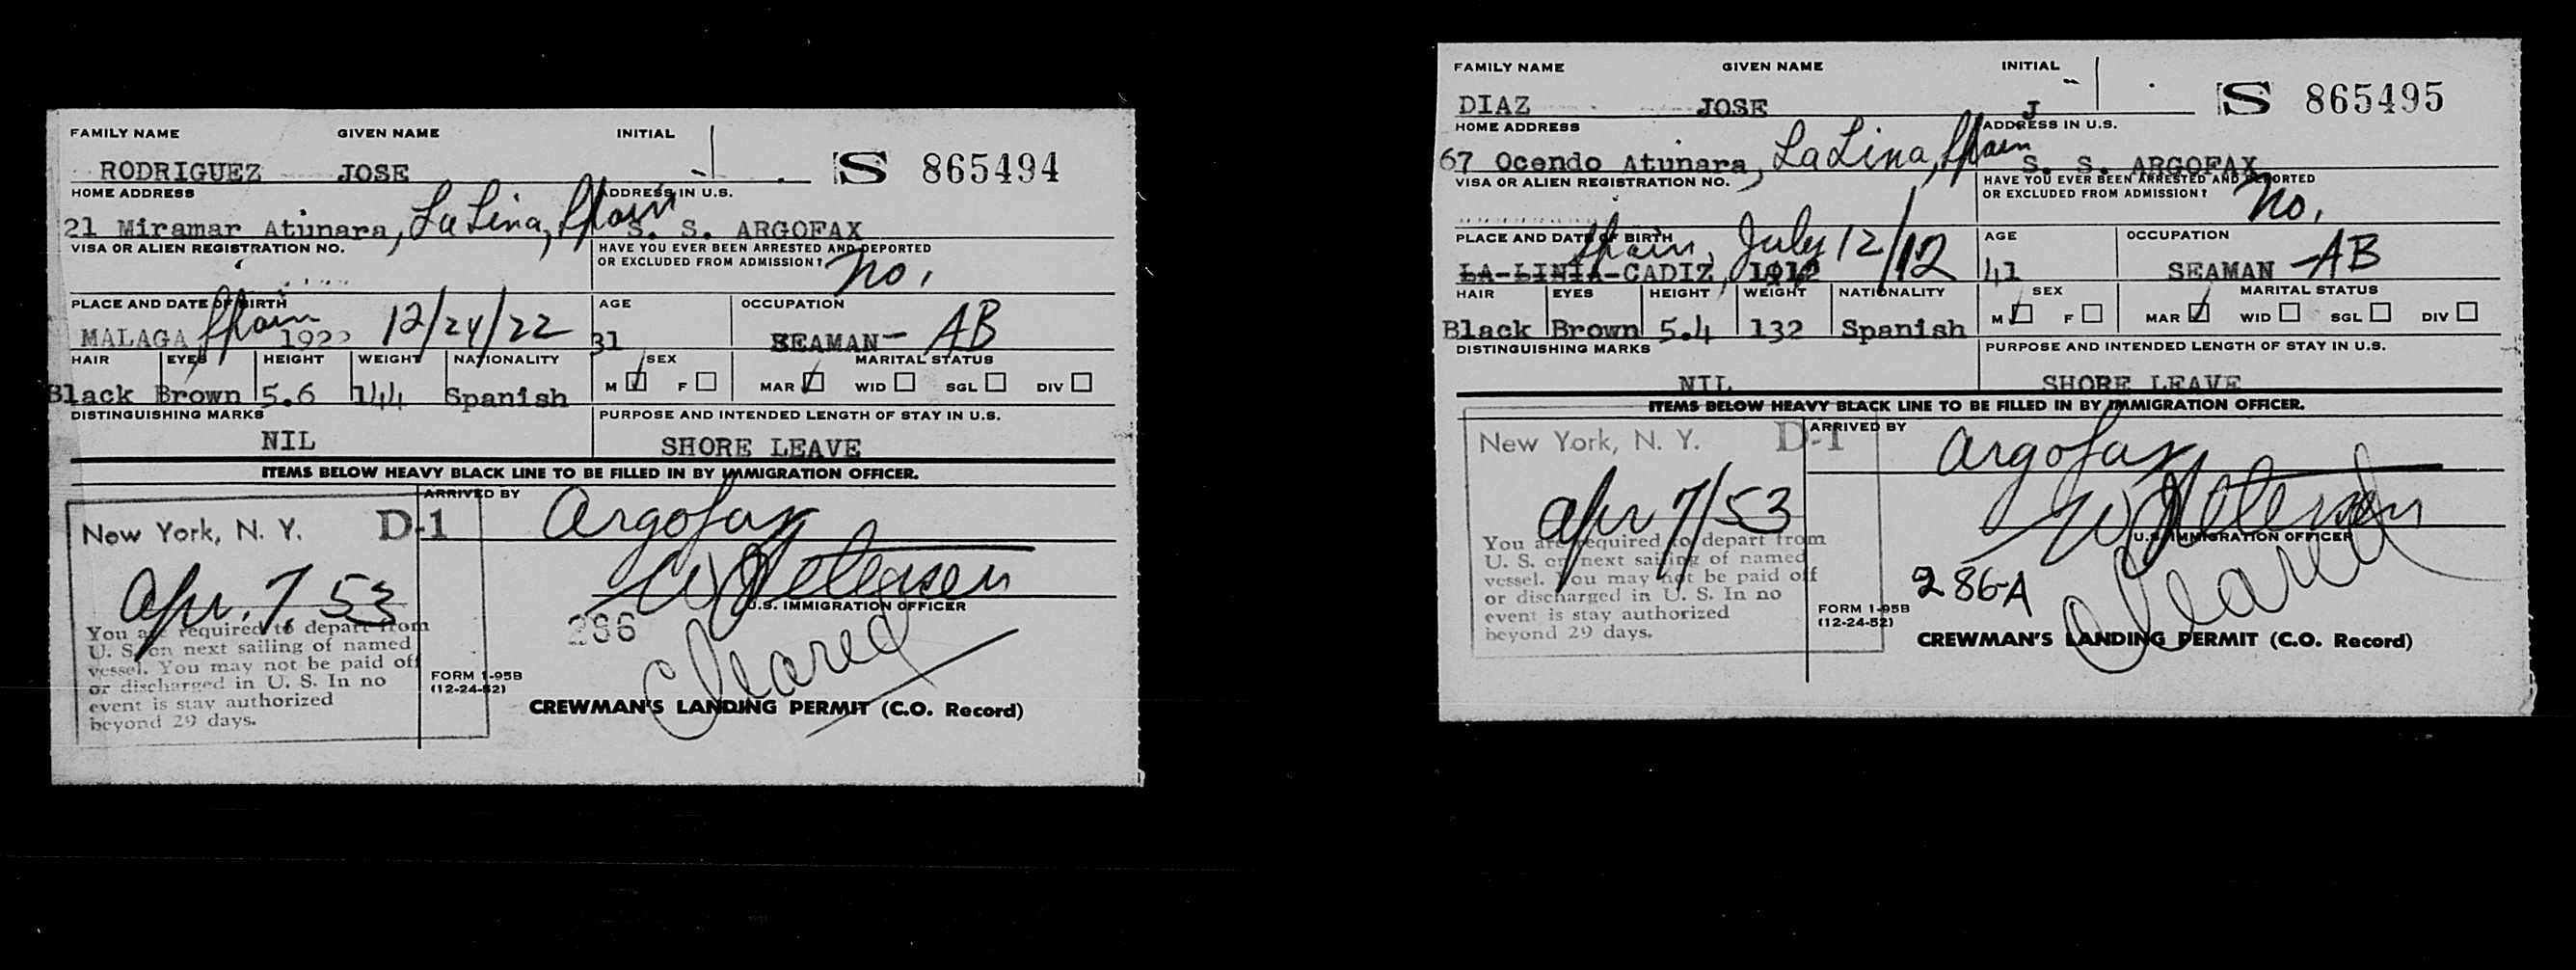 FAMILY NAME GIVEN NAME INITIAL
RODRIGUEZ JOSE S 865494
HOME ADDRESS ADDRESS IN U.S.
21 Miramar Atunara, La Lina, Spain S. S. ARGOFAX
VISA OR ALIEN REGISTRATION NO. HAVE YOU EVER BEEN ARRESTED AND DEPORTED
OR EXCLUDED FROM ADMISSION? No.
PLACE AND DATE OF BIRTH AGE OCCUPATION
MALAGA Spain 1922 12/24/22 31 SEAMAN - AB
HAIR EYES HEIGHT WEIGHT NATIONALITY SEX MARITAL STATUS
M F MAR WID SGL DIV
Black Brown 5.6 144 Spanish
DISTINGUISHING MARKS PURPOSE AND INTENDED LENGTH OF STAY IN U.S.
NIL SHORE LEAVE
ITEMS BELOW HEAVY BLACK LINE TO BE FILLED IN BY IMMIGRATION OFFICER.
ARRIVED BY
New York, N. Y. D-1 Argofax
Apr. 7, 53 W Petersen
U.S. IMMIGRATION OFFICER
You are required to depart from
U. S. on next sailing of named
vessel. You may not be paid off
or discharged in U. S. In no
event is stay authorized
beyond 29 days.
286 Cleared
FORM I-95B
(12-24-52)
CREWMAN'S LANDING PERMIT (C.O. Record)
FAMILY NAME GIVEN NAME INITIAL
DIAZ JOSE J S 865495
HOME ADDRESS ADDRESS IN U.S.
67 Ocendo Atunara, La Lina, Spain S. S. ARGOFAX
VISA OR ALIEN REGISTRATION NO. HAVE YOU EVER BEEN ARRESTED AND DEPORTED
OR EXCLUDED FROM ADMISSION? No.
PLACE AND DATE OF BIRTH AGE OCCUPATION
LA-LINIA-CADIZ, Spain, 1912 July 12/12 41 SEAMAN - AB
HAIR EYES HEIGHT WEIGHT NATIONALITY SEX MARITAL STATUS
M F MAR WID SGL DIV
Black Brown 5.4 132 Spanish
DISTINGUISHING MARKS PURPOSE AND INTENDED LENGTH OF STAY IN U.S.
NIL SHORE LEAVE
ITEMS BELOW HEAVY BLACK LINE TO BE FILLED IN BY IMMIGRATION OFFICER.
ARRIVED BY
New York, N. Y. D-1 Argofax
Apr 7/53 W Petersen
U.S. IMMIGRATION OFFICER
You are required to depart from
U. S. on next sailing of named
vessel. You may not be paid off
or discharged in U. S. In no
event is stay authorized
beyond 29 days.
286-A Cleared
FORM I-95B
(12-24-52)
CREWMAN'S LANDING PERMIT (C.O. Record)